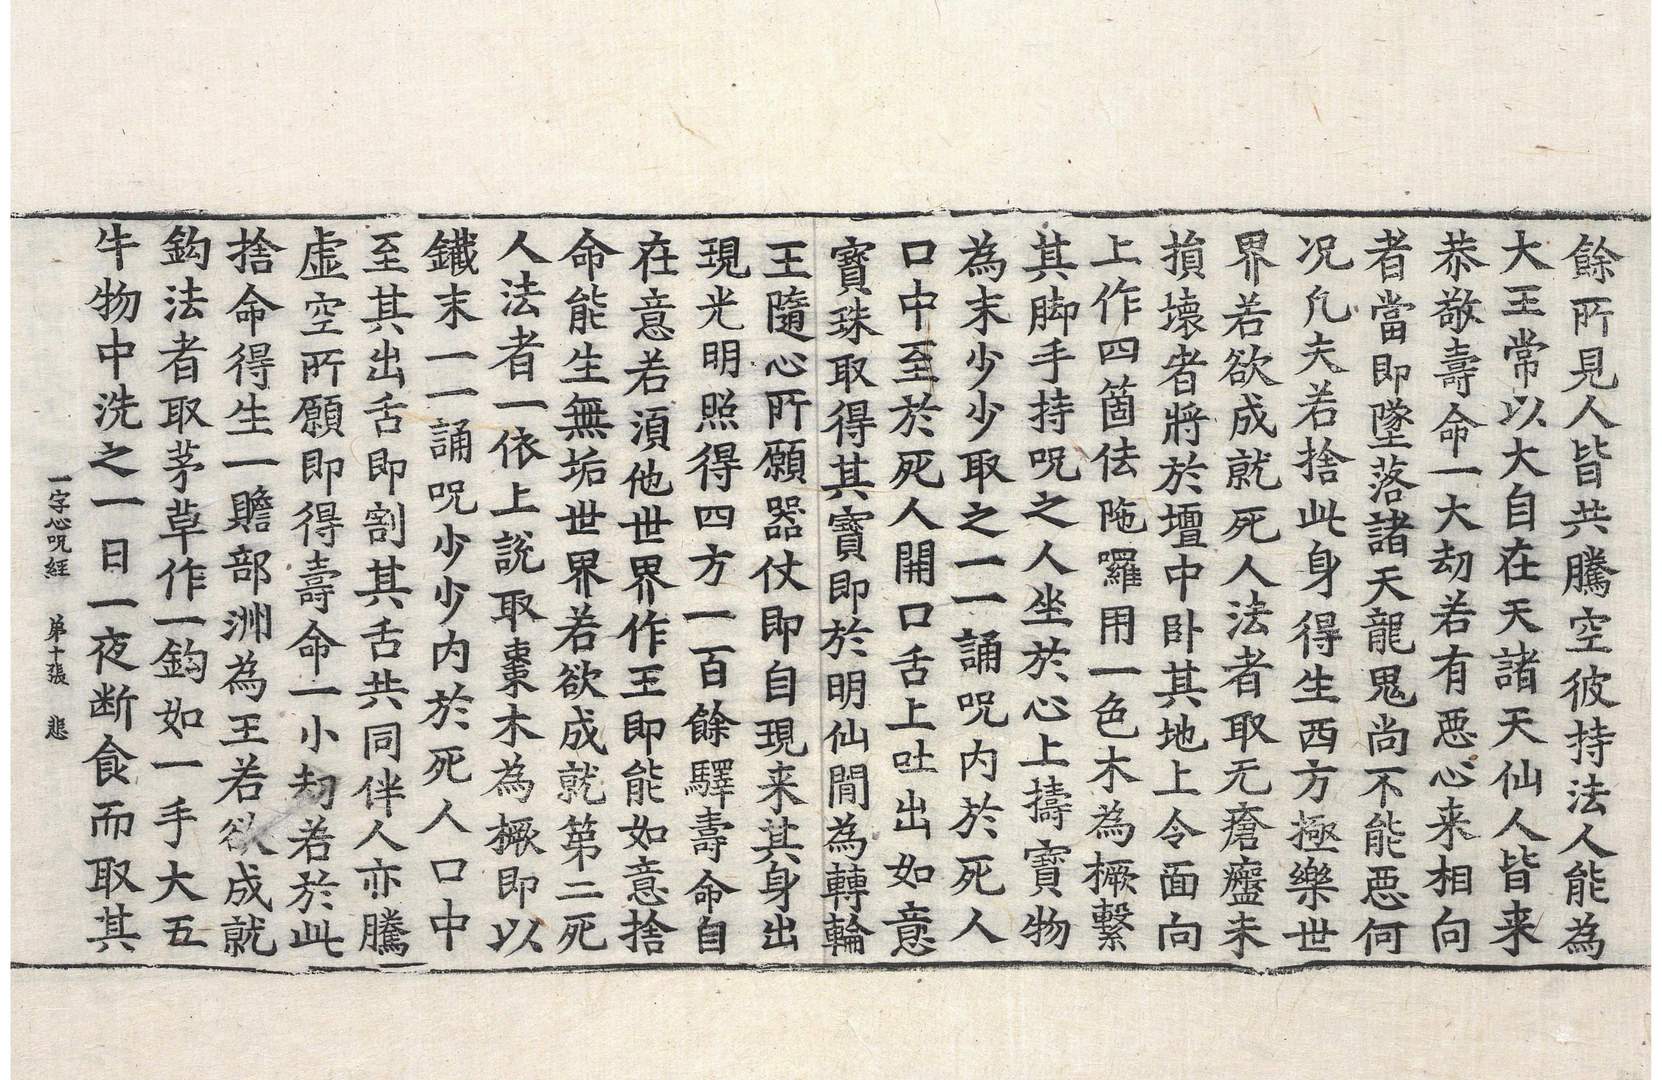 餘所見人皆共騰空彼持法人能為
大王常以大自在天諸天仙人皆来
恭敬壽命一大劫若有惡心来相向
者當即墜落諸天龍鬼尚不能惡何
况凢夫若捨此身得生西方極樂世
界若欲成就死人法者取无瘡癧未
損壞者將於壇中卧其地上令面向
上作四箇佉陁囉用一色木為橛繫
其脚手持呪之人坐於心上擣寶物
為末少少取之一一誦呪内於死人
口中至於死人開口舌上吐出如意
寶珠取得其寶即於明仙間為轉輪
王隨心所願器仗即自現来其身出
現光明照得四方一百餘驛壽命自
在意若湏他世界作王即能如意捨
命能生無垢世界若欲成就第二死
人法者一依上說取棗木為橛即以
鐵末一一誦呪少少内於死人口中
至其出舌即割其舌共同伴人亦騰
虛空所願即得壽命一小劫若於此
捨命得生一贍部洲為王若欲成就
鈎法者取茅草作一鈎如一手大五
牛物中洗之一日一夜断食而取其
一字心呪經 弟十張 悲